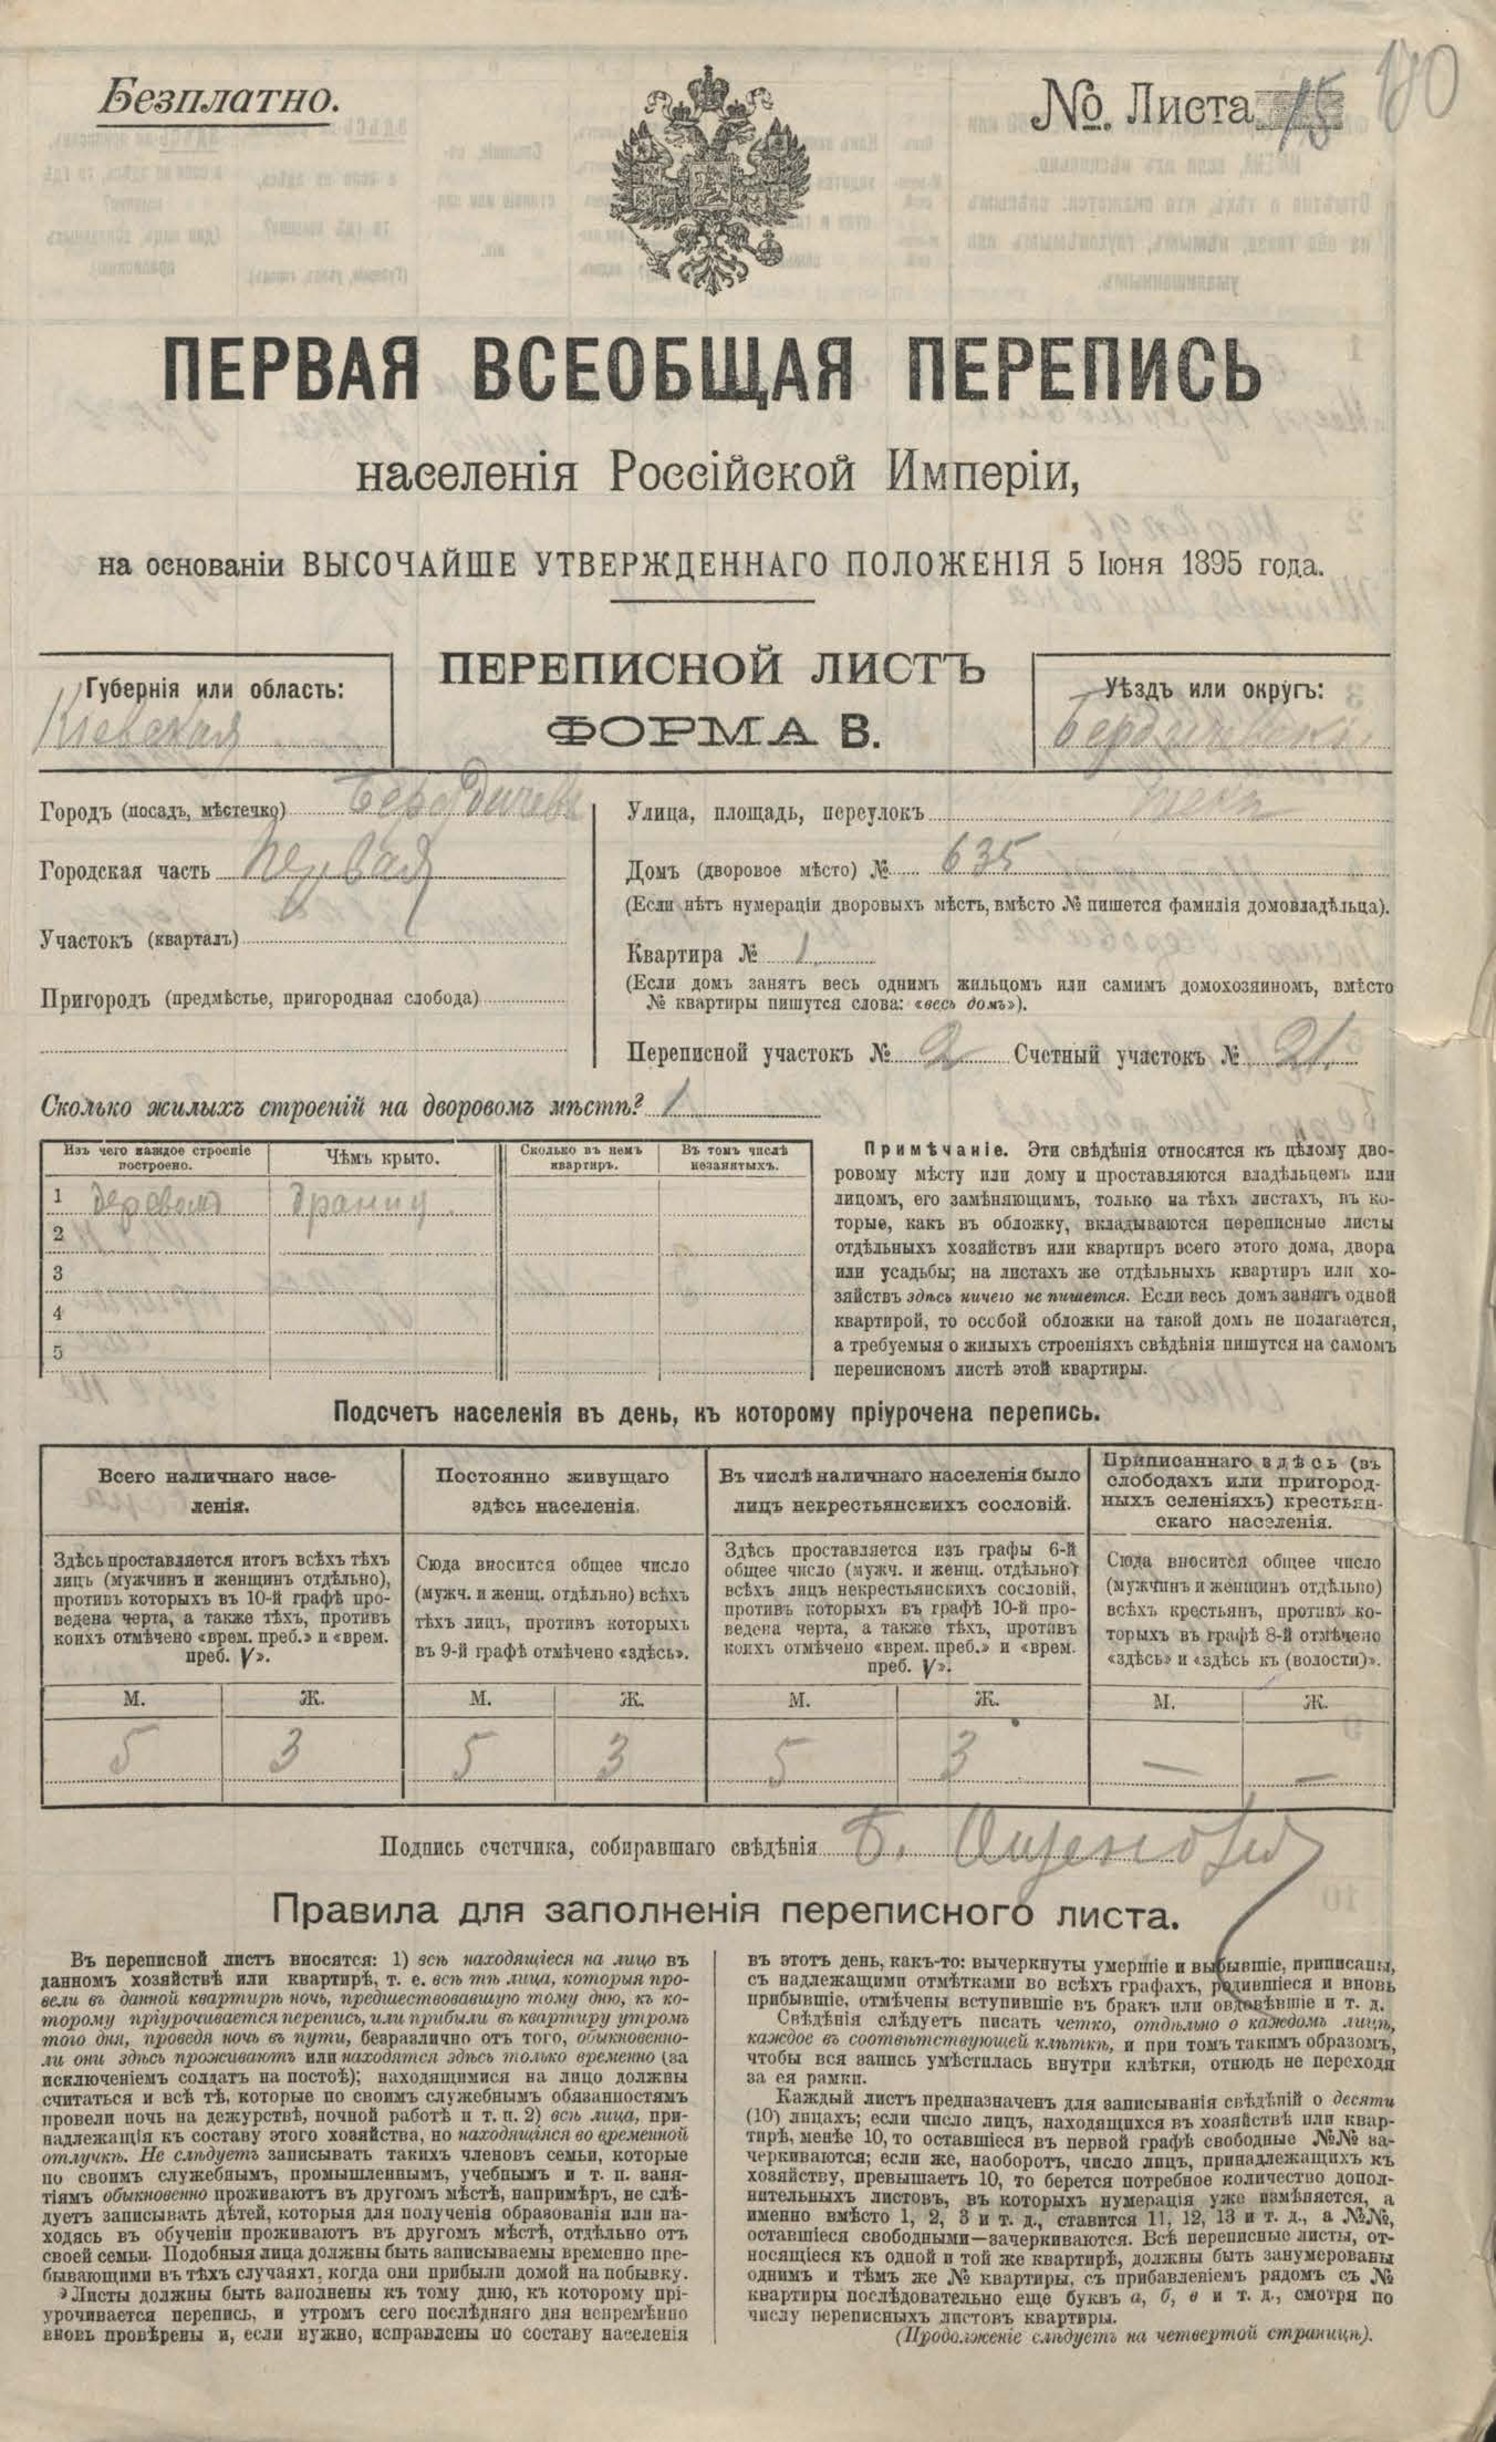 Безплатно.
№. Листа 15
180
ПЕРВАЯ ВСЕОБЩАЯ ПЕРЕПИСЬ
населенія Россійской Имперіи,
на основаніи ВЫСОЧАЙШЕ УТВЕРЖДЕННАГО ПОЛОЖЕНІЯ 5 Іюня 1895 года.
ПЕРЕПИСНОЙ ЛИСТЪ
ФОРМА В.
Губернія или область:
Кіевская
Уѣздъ или округъ:
Бердичевскій
Городъ (посадъ, мѣстечко) Бердичевъ
Городская часть Первая
Участокъ (кварталъ)
Пригородъ (предмѣстье, пригородная слобода)
Улица, площадь, переулокъ
Домъ (дворовое мѣсто) № 635
(Если нѣтъ нумераціи дворовыхъ мѣстъ, вмѣсто № пишется фамилія домовладѣльца).
Квартира № 1.
(Если домъ занятъ весь однимъ жильцомъ или самимъ домохозяиномъ, вмѣсто
№ квартиры пишутся слова: «весь домъ»).
Переписной участокъ № 2 Счетный участокъ № 21
Сколько жилыхъ строеній на дворовомъ мѣстѣ? 1
Изъ чего каждое строеніе
построено.
Чѣмъ крыто.
Сколько въ немъ
квартиръ.
Въ томъ числѣ
незанятыхъ.
1 дерева драниц
2
3
4
5
Примѣчаніе. Эти свѣдѣнія относятся къ цѣлому дво-
ровому мѣсту или дому и проставляются владѣльцемъ или
лицомъ, его замѣняющимъ, только на тѣхъ листахъ, въ ко-
торые, какъ въ обложку, вкладываются переписные листы
отдѣльныхъ хозяйствъ или квартиръ всего этого дома, двора
или усадьбы; на листахъ же отдѣльныхъ квартиръ или хо-
зяйствъ здѣсь ничего не пишется. Если весь домъ занятъ одной
квартирой, то особой обложки на такой домъ не полагается,
а требуемыя о жилыхъ строеніяхъ свѣдѣнія пишутся на самомъ
переписномъ листѣ этой квартиры.
Подсчетъ населенія въ день, къ которому пріурочена перепись.
Всего наличнаго насе-
ленія.
Здѣсь проставляется итогъ всѣхъ тѣхъ
лицъ (мужчинъ и женщинъ отдѣльно),
противъ которыхъ въ 10-й графѣ про-
ведена черта, а также тѣхъ, противъ
коихъ отмѣчено «врем. преб.» и «врем.
преб. V».
Постоянно живущаго
здѣсь населенія.
Сюда вносится общее число
(мужч. и женщ. отдѣльно) всѣхъ
тѣхъ лицъ, противъ которыхъ
въ 9-й графѣ отмѣчено «здѣсь».
Въ числѣ наличнаго населенія было
лицъ некрестьянскихъ сословій.
Здѣсь проставляется изъ графы 6-й
общее число (мужч. и женщ. отдѣльно)
всѣхъ лицъ некрестьянскихъ сословій,
противъ которыхъ въ графѣ 10-й про-
ведена черта, а также тѣхъ, противъ
коихъ отмѣчено «врем. преб.» и «врем.
преб. V».
Приписаннаго здѣсь (въ
слободахъ или пригород-
ныхъ селеніяхъ) крестьян-
скаго населенія.
Сюда вносится общее число
(мужчинъ и женщинъ отдѣльно)
всѣхъ крестьянъ, противъ ко-
торыхъ въ графѣ 8-й отмѣчено
«здѣсь» и «здѣсь къ (волости)».
М. Ж. М. Ж. М. Ж. М. Ж.
5 3 5 3 5 3 — —
Подпись счетчика, собиравшаго свѣдѣнія
Правила для заполненія переписного листа.
Въ переписной листъ вносятся: 1) всѣ находящіеся на лицо въ
данномъ хозяйствѣ или квартирѣ, т. е. всѣ тѣ лица, которыя про-
вели въ данной квартирѣ ночь, предшествовавшую тому дню, къ ко-
торому пріурочивается перепись, или прибыли въ квартиру утромъ
того дня, проведя ночь въ пути, безразлично отъ того, обыкновенно-
ли они здѣсь проживаютъ или находятся здѣсь только временно (за
исключеніемъ солдатъ на постоѣ); находящимися на лицо должны
считаться и всѣ тѣ, которые по своимъ служебнымъ обязанностямъ
провели ночь на дежурствѣ, ночной работѣ и т. п. 2) всѣ лица, при-
надлежащія къ составу этого хозяйства, но находящіяся во временной
отлучкѣ. Не слѣдуетъ записывать такихъ членовъ семьи, которые
по своимъ служебнымъ, промышленнымъ, учебнымъ и т. п. заня-
тіямъ обыкновенно проживаютъ въ другомъ мѣстѣ, напримѣръ, не слѣ-
дуетъ записывать дѣтей, которыя для полученія образованія или на-
ходясь въ обученіи проживаютъ въ другомъ мѣстѣ, отдѣльно отъ
своей семьи. Подобныя лица должны быть записываемы временно пре-
бывающими въ тѣхъ случаяхъ, когда они прибыли домой на побывку.
Листы должны быть заполнены къ тому дню, къ которому прі-
урочивается перепись, и утромъ сего послѣдняго дня непремѣнно
вновь провѣрены и, если нужно, исправлены по составу населенія
въ этотъ день, какъ-то: вычеркнуты умершіе и выбывшіе, приписаны,
съ надлежащими отмѣтками во всѣхъ графахъ, родившіеся и вновь
прибывшіе, отмѣчены вступившіе въ бракъ или овдовѣвшіе и т. д.
Свѣдѣнія слѣдуетъ писать четко, отдѣльно о каждомъ лицѣ,
каждое въ соотвѣтствующей клѣткѣ, и при томъ такимъ образомъ,
чтобы вся запись умѣстилась внутри клѣтки, отнюдь не переходя
за ея рамки.
Каждый листъ предназначенъ для записыванія свѣдѣній о десяти
(10) лицахъ; если число лицъ, находящихся въ хозяйствѣ или квар-
тирѣ, менѣе 10, то оставшіеся въ первой графѣ свободные №№ за-
черкиваются; если же, наоборотъ, число лицъ, принадлежащихъ къ
хозяйству, превышаетъ 10, то берется потребное количество допол-
нительныхъ листовъ, въ которыхъ нумерація уже измѣняется, а
именно вмѣсто 1, 2, 3 и т. д., ставится 11, 12, 13 и т. д., а №№,
оставшіеся свободными—зачеркиваются. Всѣ переписные листы, от-
носящіеся къ одной и той же квартирѣ, должны быть занумерованы
однимъ и тѣмъ же № квартиры, съ прибавленіемъ рядомъ съ №
квартиры послѣдовательно еще буквъ а, б, в и т. д., смотря по
числу переписныхъ листовъ квартиры.
(Продолженіе слѣдуетъ на четвертой страницѣ).